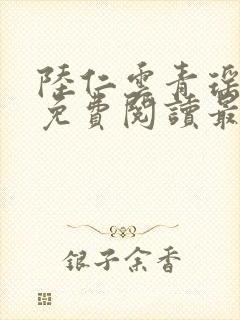 陸仁雲青瑤
免費閱讀最
銀子余香